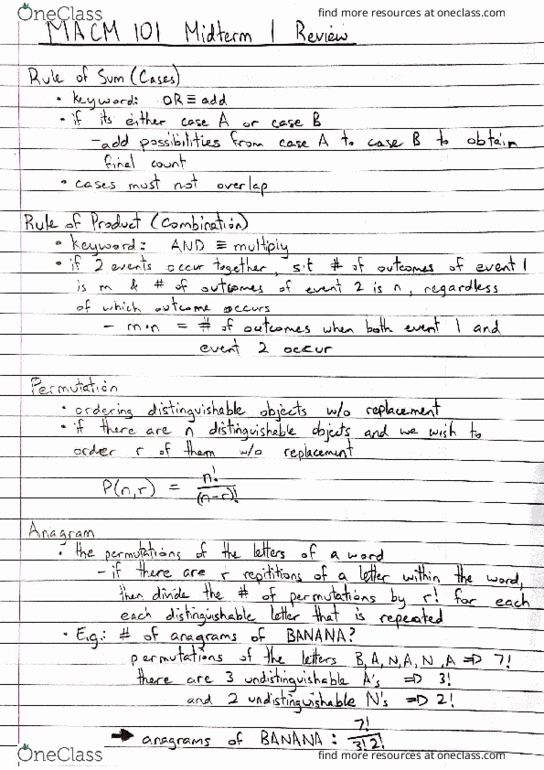 OneClass find more resources at oneclass.com
MACM 101 Midterm 1 Review
Rule of Sum (Cases)
• keyword: OR ≡ add
• if its either case A or case B
- add possibilities from case A to case B to obtain
final count
• cases must not overlap
Rule of Product (Combination)
• keyword: AND ≡ multiply
• if 2 events occur together, s.t # of outcomes of event 1
is m & # of outcomes of event 2 is n, regardless
of which outcome occurs
- m·n = # of outcomes when both event 1 and
event 2 occur
Permutation
• ordering distinguishable objects w/o replacement
• if there are n distinguishable objects and we wish to
order r of them w/o replacement
P(n,r) = n!/(n-r)!
Anagram
• the permutations of the letters of a word
- if there are r repititions of a letter within the word,
then divide the # of permutations by r! for each
each distinguishable letter that is repeated
• E.g.: # of anagrams of BANANA?
permutations of the letters B,A,N,A,N,A => 7!
there are 3 undistinguishable A's => 3!
and 2 undistinguishable N's => 2!
→ anagrams of BANANA: 7!/3!2!
OneClass find more resources at oneclass.com